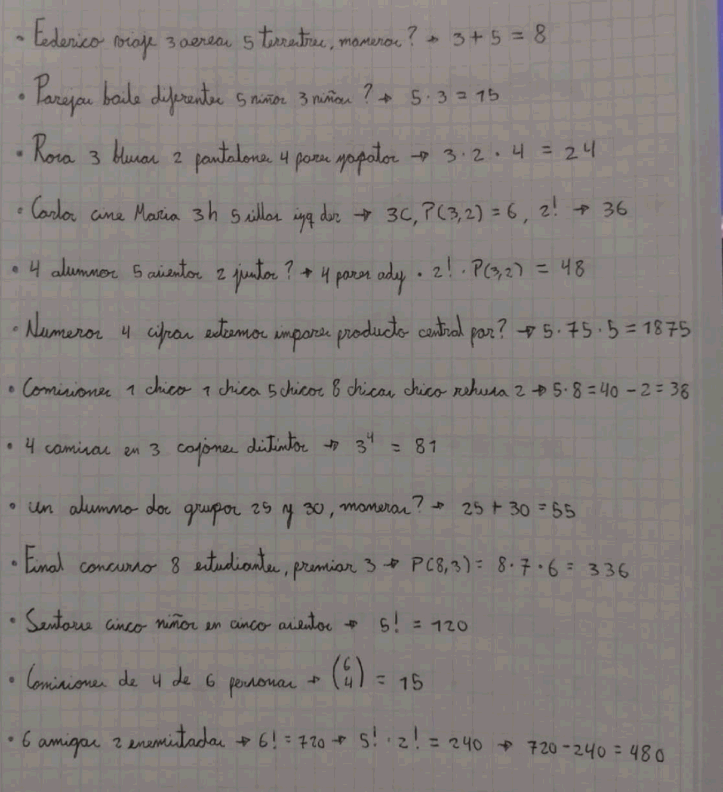 • Federico viaje 3 aereas 5 terrestres, maneras? → 3 + 5 = 8
• Parejas baile diferentes 5 niños 3 niñas? → 5·3 = 15
• Rosa 3 blusas 2 pantalones 4 pares zapatos → 3·2·4 = 24
• Carlos cine Maria 3h 5 sillas izq der → 3C, P(3,2) = 6, 2! → 36
• 4 alumnos 5 asientos 2 juntos? → 4 pares ady · 2! · P(3,2) = 48
• Numeros 4 cifras extremos impares producto central par? → 5·75·5 = 1875
• Comisiones 1 chico 1 chica 5 chicos 8 chicas chico rehusa 2 → 5·8 = 40 - 2 = 38
• 4 camisas en 3 cajones distintos → 3⁴ = 81
• un alumno dos grupos 25 y 30, maneras? → 25 + 30 = 55
• Final concurso 8 estudiantes, premiar 3 → P(8,3) = 8·7·6 = 336
• Sentarse cinco niños en cinco asientos → 5! = 120
• Comisiones de 4 de 6 personas → (6 4) = 15
• 6 amigas 2 enemistadas → 6! = 720 → 5! · 2! = 240 → 720 - 240 = 480